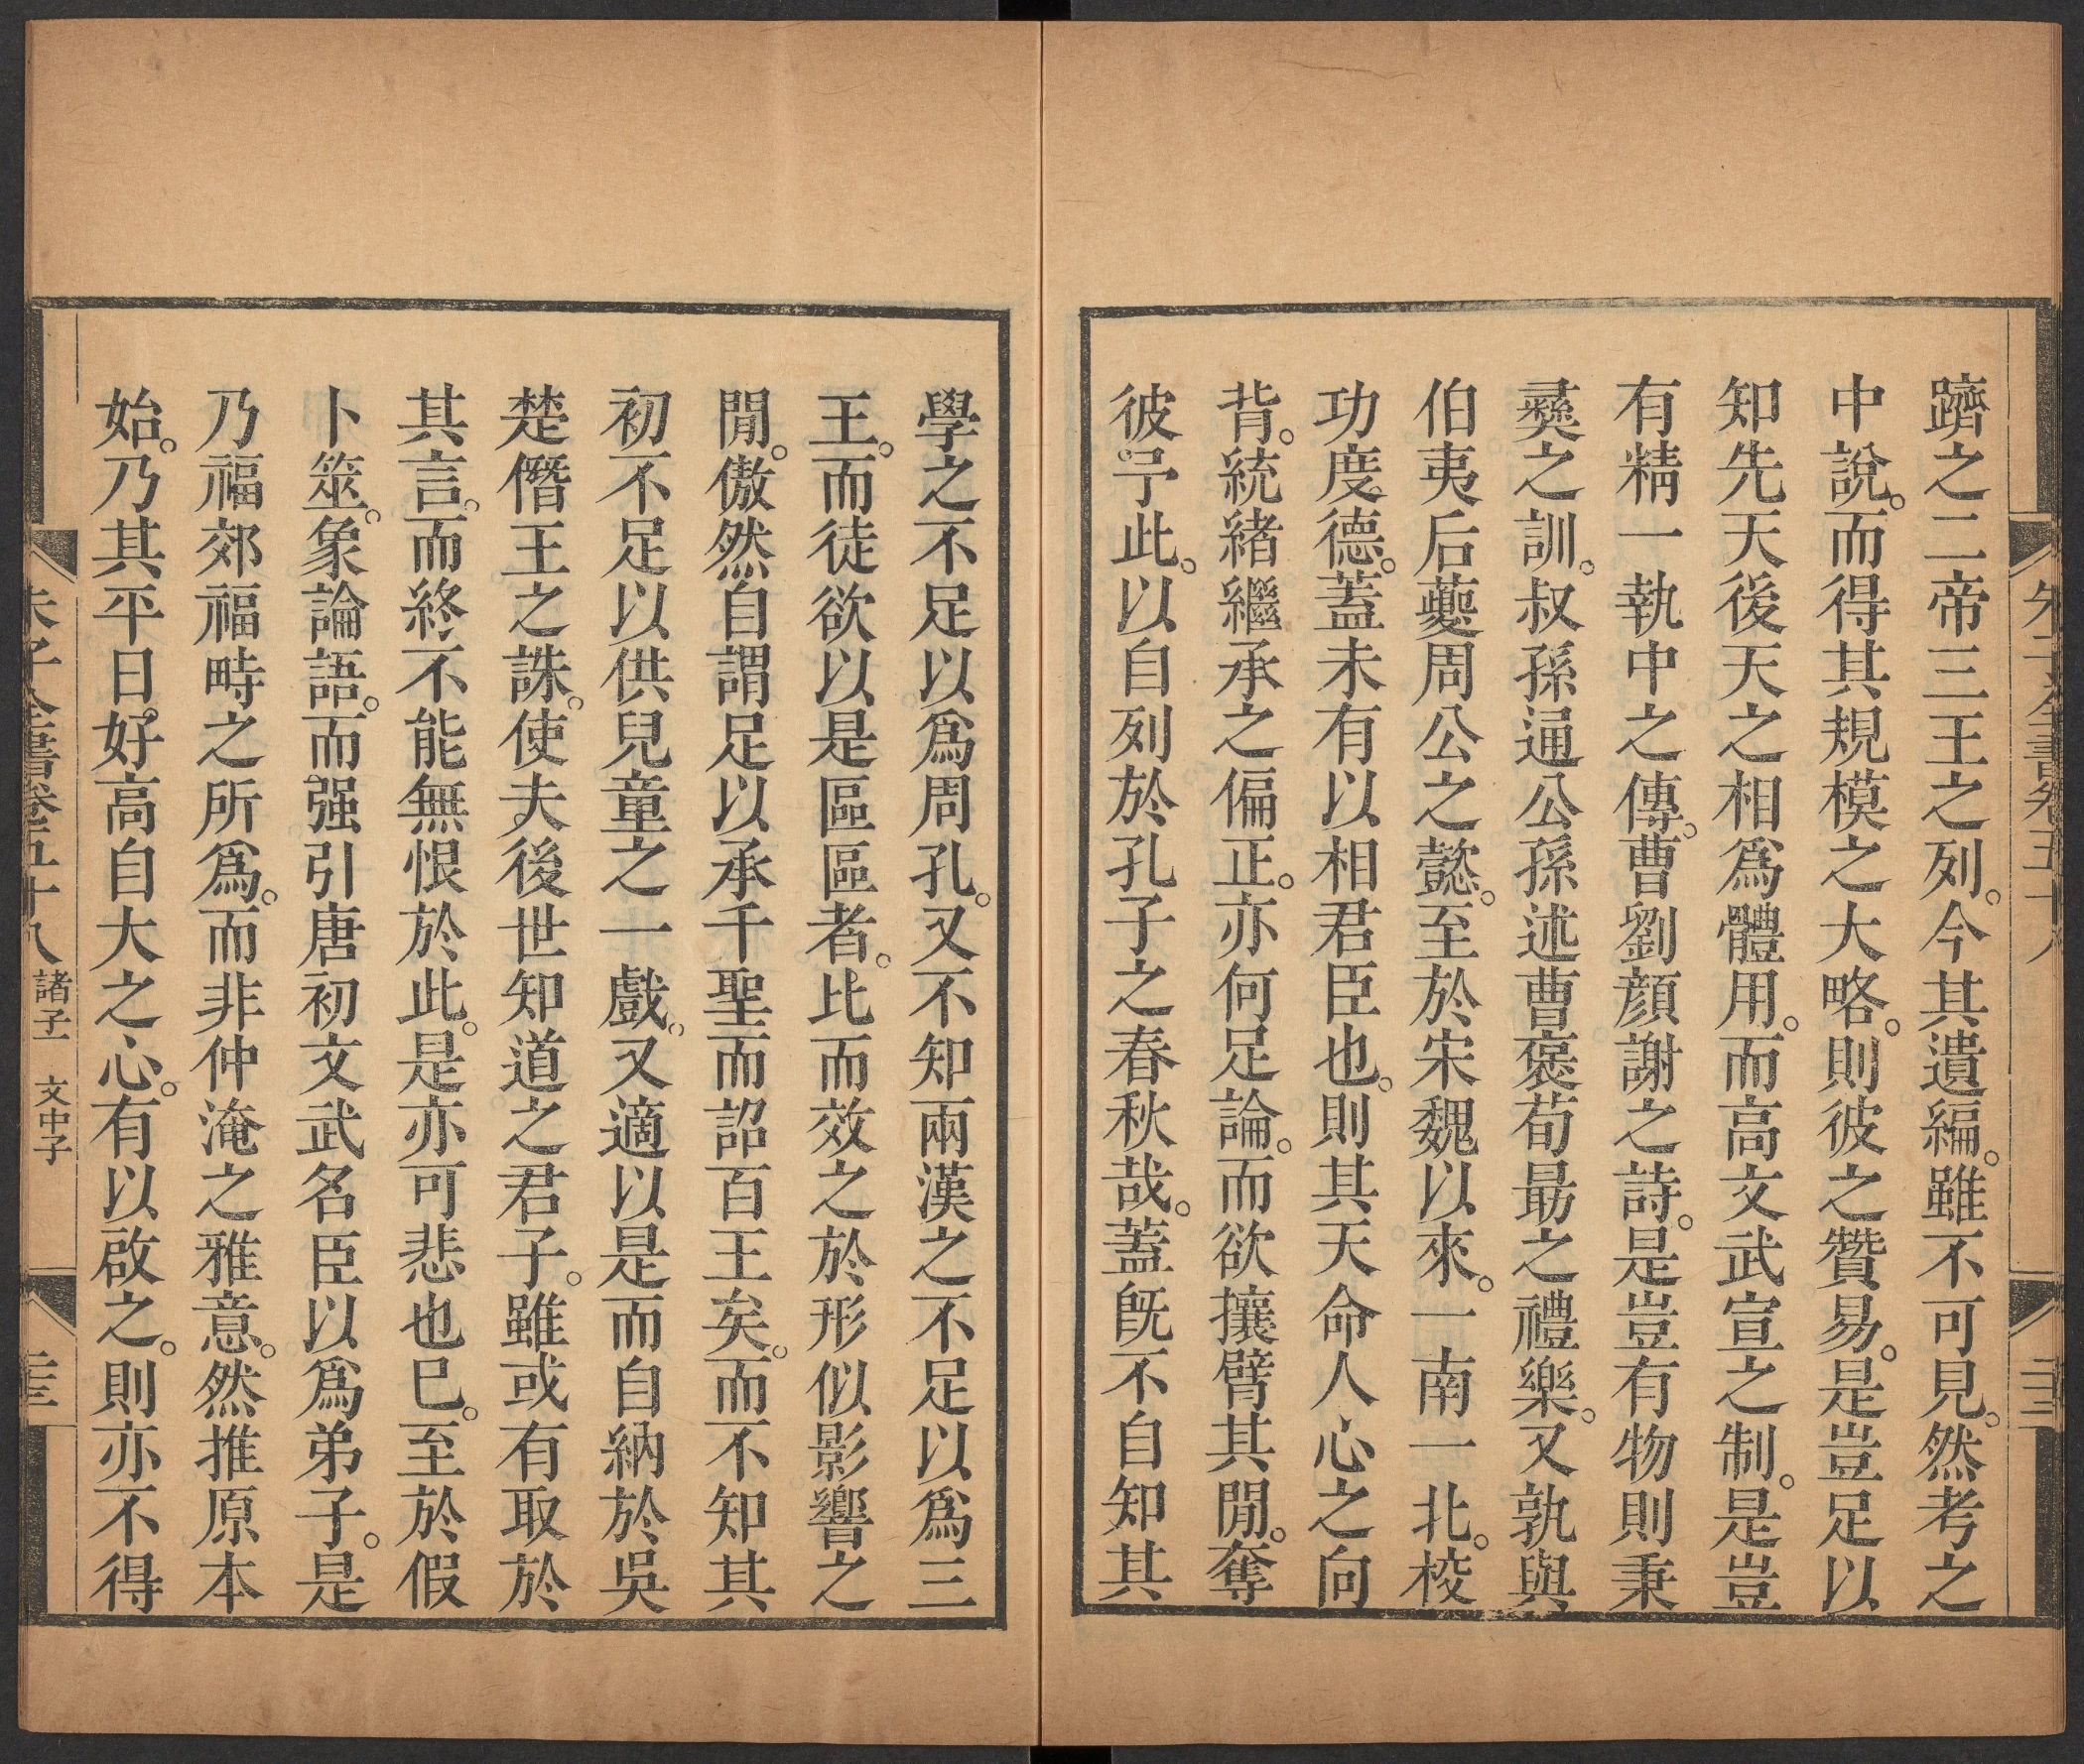 躋之二帝三王之列。今其遺編。雖不可見。然考之
中說。而得其規模之大略。則彼之贊易。是豈足以
知先天後天之相爲體用。而高文武宣之制。是豈
有精一執中之傳。曹劉顏謝之詩。是豈有物則秉
彛之訓。叔孫通公孫述曹褒荀勗之禮樂。又孰與
伯夷后夔周公之懿。至於宋魏以來。一南一北。校
功度德。蓋未有以相君臣也。則其天命人心之向
背。統緒繼承之偏正。亦何足論。而欲攘臂其閒。奪
彼予此。以自列於孔子之春秋哉。蓋旣不自知其
學之不足以爲周孔。又不知兩漢之不足以爲三
王。而徒欲以是區區者。比而效之於形似影響之
閒。傲然自謂足以承千聖而詔百王矣。而不知其
初不足以供兒童之一戲。又適以是而自納於吳
楚僭王之誅。使夫後世知道之君子。雖或有取於
其言。而終不能無恨於此。是亦可悲也已。至於假
卜筮。象論語。而强引唐初文武名臣以爲弟子。是
乃福郊福畤之所爲。而非仲淹之雅意。然推原本
始。乃其平日。好高自大之心。有以啟之。則亦不得
朱子全書卷五十八 諸子一 文中子